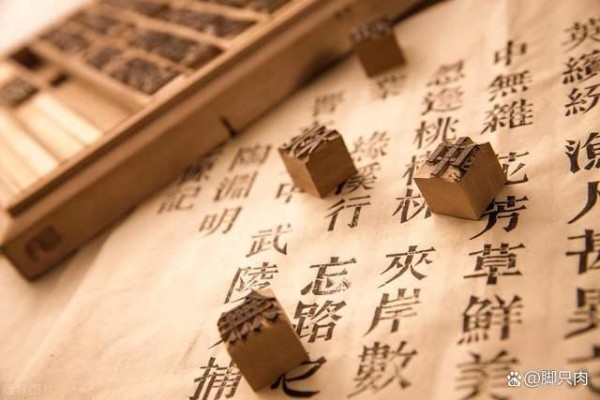 記
陶淵明
晉中武陵捕
業緣溪行忘路之
忽逢桃林夾岸數
中無雜芳草鮮美
英繽紛漁人甚異
@脚只肉